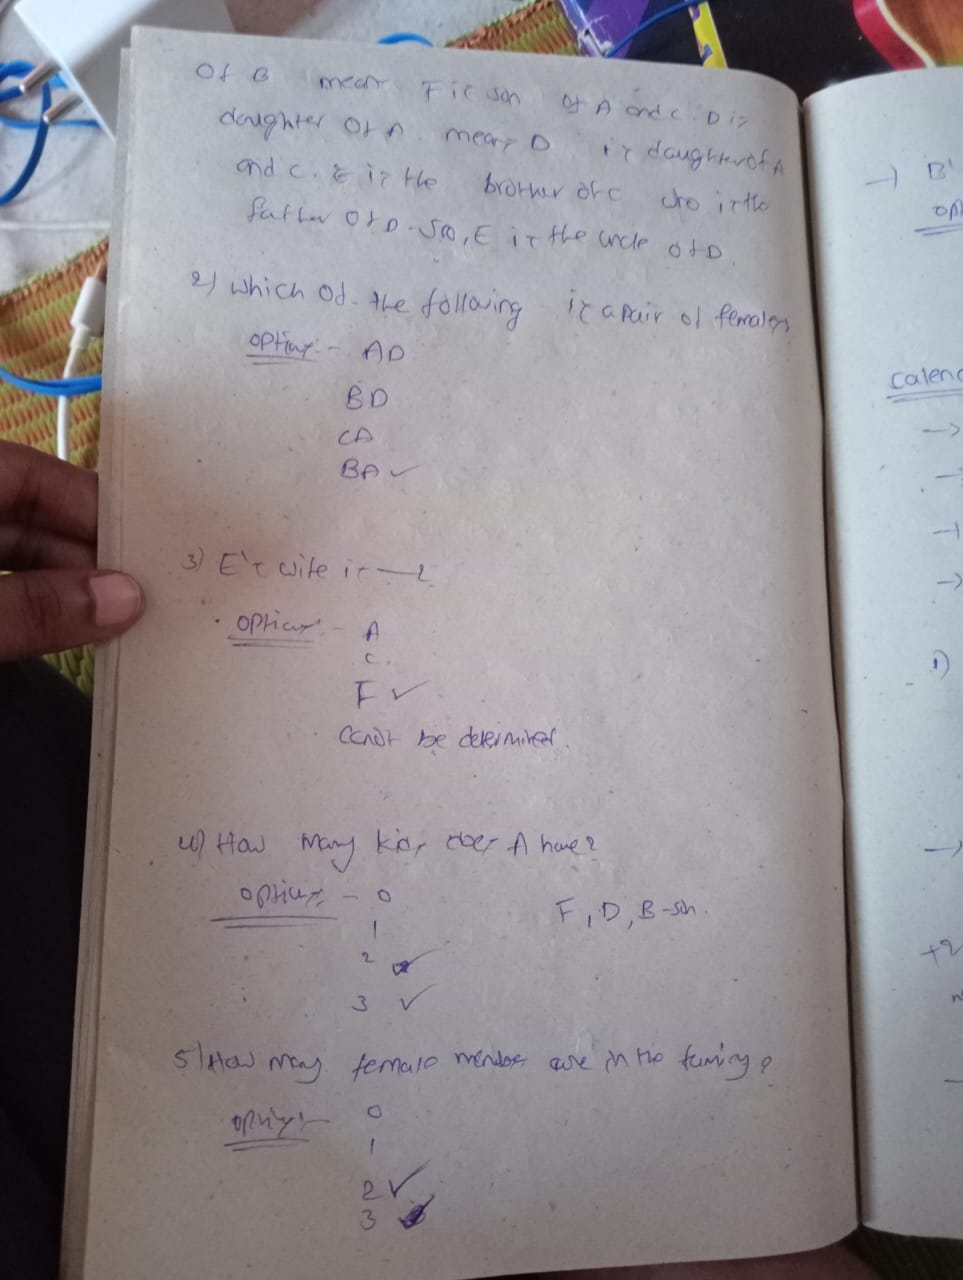 Of B means F is son of A and C. D is
daughter of A. means D is daughter of A
and C. E is the brother of C who is the
father of D. So, E is the uncle of D.
2) Which of the following is a pair of females
options:- AD
BD
CA
BA ✓
3) E's wife is —?
options:- A
C.
F ✓
cannot be determined.
4) How many kids does A have?
options - 0
1
2
3 ✓
F, D, B - son.
5) How many female members are in the family?
options:- 0
1
2 ✓
3
→ B'
calend
→
→
1)
→
+2